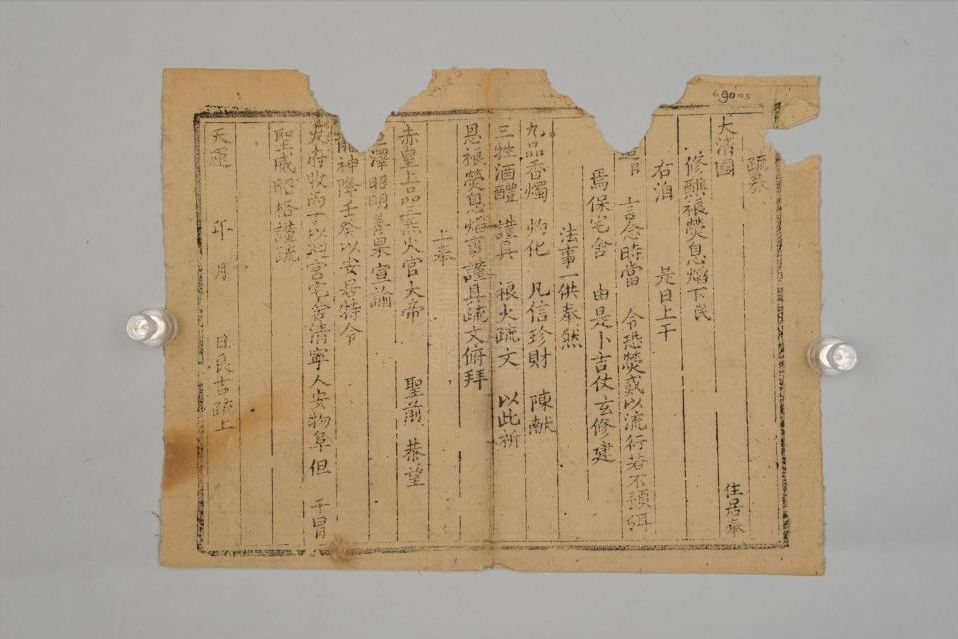 69005
疏奉
大清國 住居奉
修醮禳熒息焰下民
右洎 是日上干
言念時當 令恐熒惑以流行若不預弭
焉保宅舍 由是卜吉仗玄修建
法事一供奉然
九品香燭 灼化 凡信珍財 陳献
三牲酒醴 謹具 禳火疏文 以此祈
恩禳熒息焰事謹具疏文俯拜
上奉
赤皇上品三炁火官大帝 聖前 恭望
澤昭明善果宣諭
龍神降壬癸以安居特令
火府收丙丁以迎宮宅舍清寧人安物阜但 干冒
聖威昭格謹疏
天運 年 月 日良吉疏上